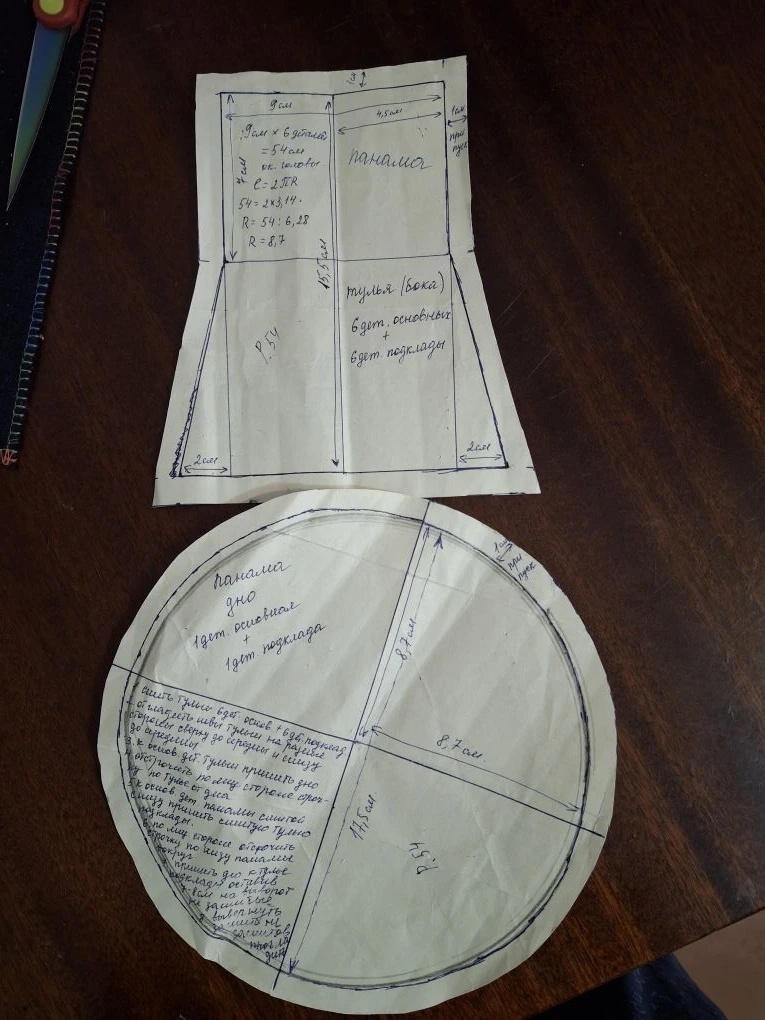 1см
9см
4,5см
1см
при
пуск
7см
9см × 6 деталей
= 54см
ок. головы
C = 2ПR
54 = 2×3,14·
R = 54 : 6,28
R = 8,7
панама
15,5см
тулья (бока)
6дет. основных
+
6дет. подклады
Р. 54
2см
2см
панама
дно
1дет. основная
+
1дет. подклада
1см
при
пуск
8,7см
8,7см.
17,5см.
Р. 54
сшить тулью 6дет. основ. + 6дет. подклад
отгладить швы тульи на разные
стороны сверху до середины и снизу
до середины
3. к основ. дет. тульи пришить дно
4. отстрочить по лиц. стороне строч-
ку по тулье от дна
5. к основ. дет. панамы сшитой
снизу пришить сшитую тулью
подклады.
6. по лиц. стороне отстрочить
строчку по низу панамы
вокруг
пришить дно к тулье
подклада оставив
7-8см на выворот
не зашитые
вывернуть
зашить не
прогла
дить